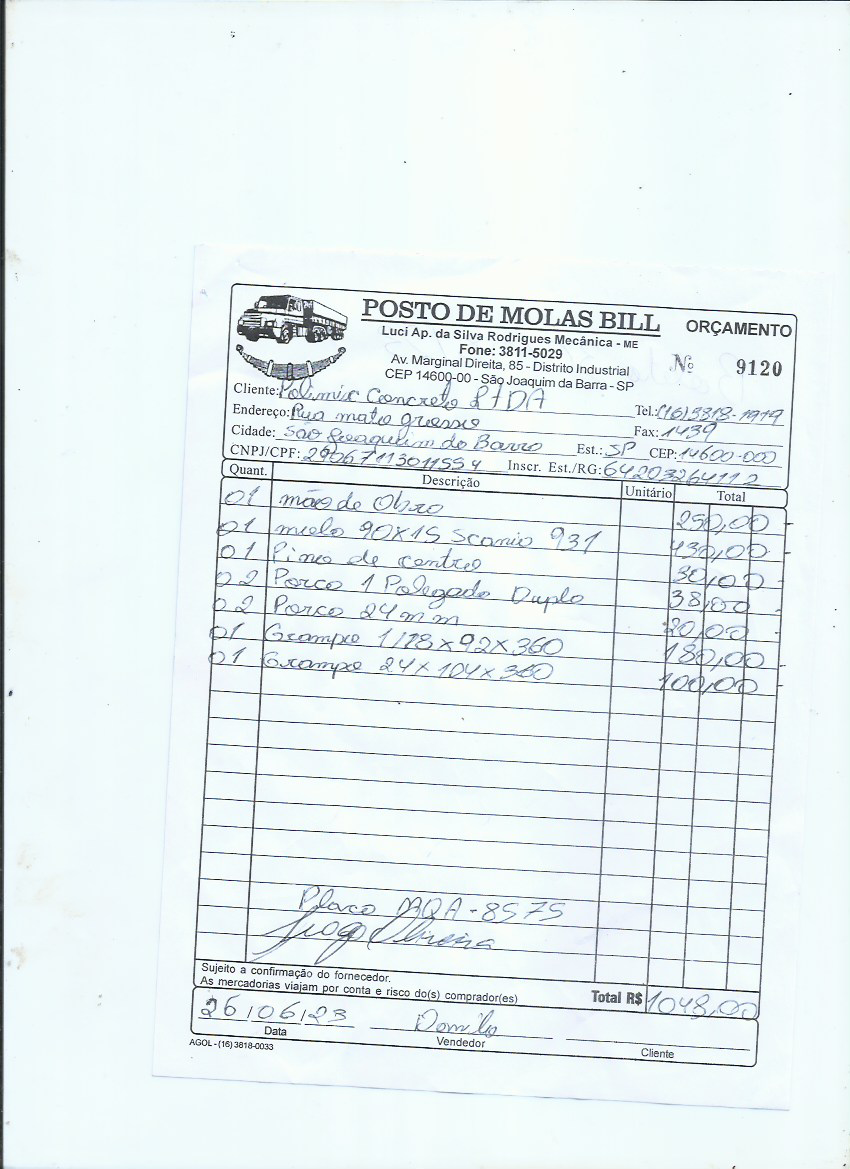 POSTO DE MOLAS BILL
ORÇAMENTO
Luci Ap. da Silva Rodrigues Mecânica - ME
Fone: 3811-5029
Av. Marginal Direita, 85 - Distrito Industrial
CEP 14600-00 - São Joaquim da Barra - SP
Nº 9120
Cliente: Polimix Concreto LTDA
Endereço: Rua mato grosso Tel.: (16)3818-1919
Cidade: São Joaquim da Barra Fax: 1439
Est.: SP CEP: 14600-000
CNPJ/CPF: Inscr. Est./RG: 642032641112
Quant. Descrição Unitário Total
01 mão de Obra 250,00
01 90X15 Scania 931 430,00
01 Pino de centro 30,00
02 Porca 1 Polegada Dupla 38,00
02 Porca 24mm 20,00
01 Grampo 1/18x92x360 180,00
01 Grampo 24x104x360 100,00
Placa -8575
Oliveira
Sujeito a confirmação do fornecedor.
As mercadorias viajam por conta e risco do(s) comprador(es)
Total R$ 1048,00
26/06/23 Danilo
Data Vendedor Cliente
AGOL - (16) 3818-0033